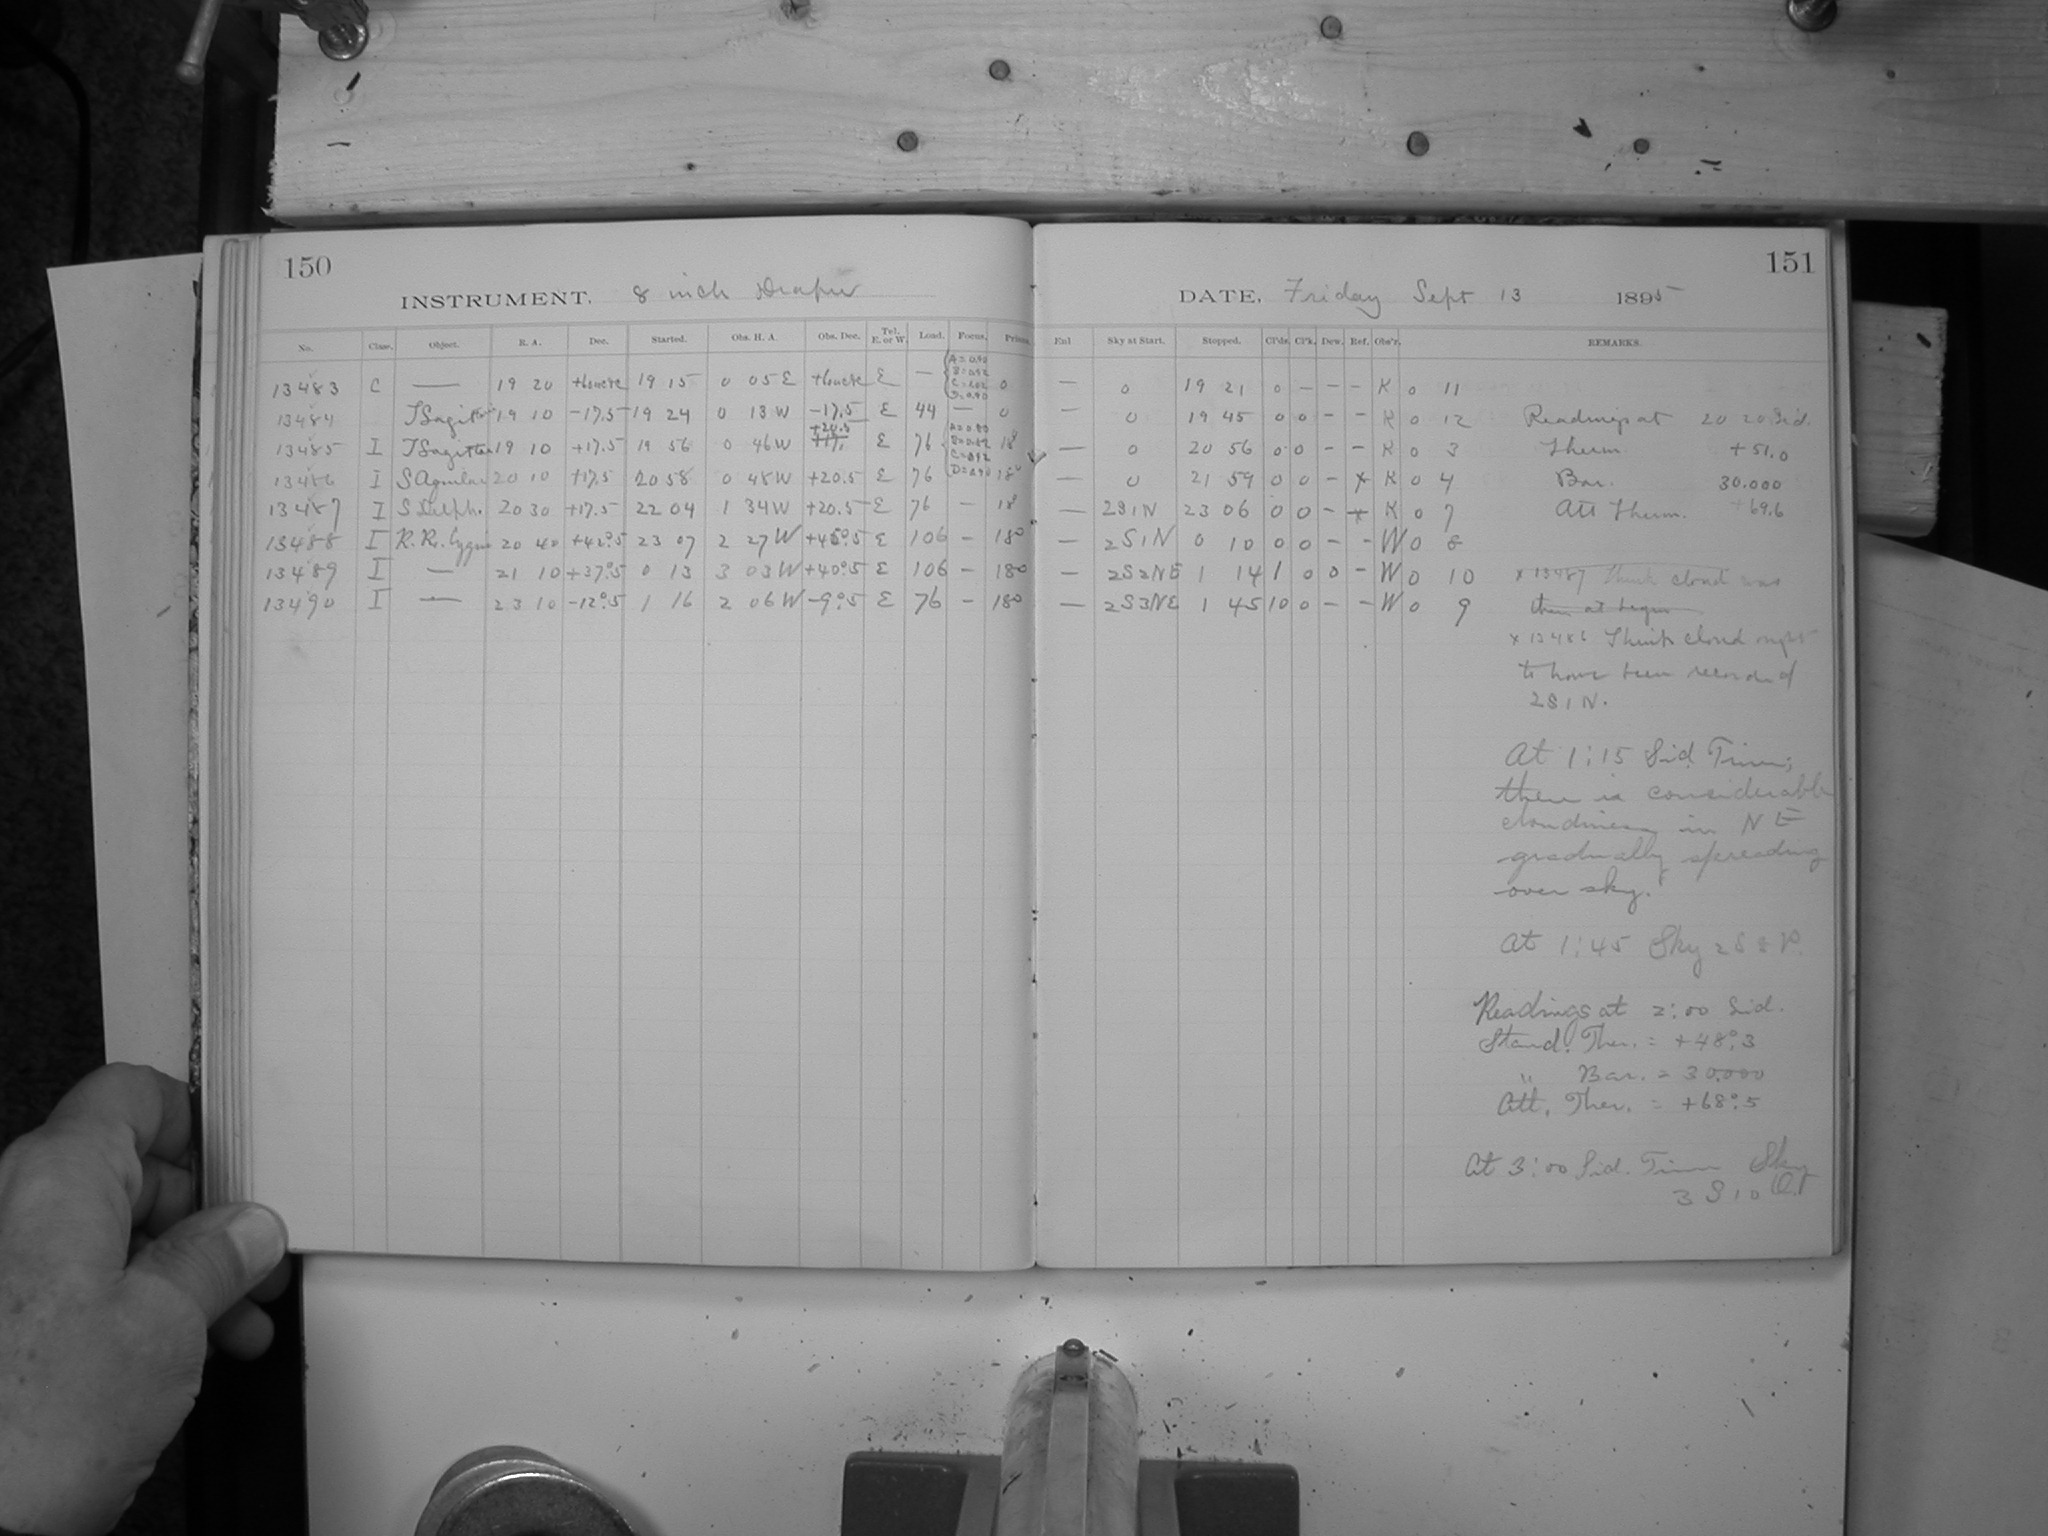 150
INSTRUMENT, 8 inch Draper
No. Class. Object. R. A. Dec. Started. Obs. H. A. Obs. Dec. Tel. E. or W. Load. Focus. Prisms.
13483 C — 19 20 19 15 0 05 E E — 0
13484 19 10 -17.5 19 24 0 13 W -17.5 E 44 — 0
13485 I 19 10 +17.5 19 56 0 46 W +20.5 E 76
13486 I S Aquilae 20 10 +17.5 20 58 0 48 W +20.5 E 76
13487 I S Delph. 20 30 +17.5 22 04 1 34 W +20.5 E 76 —
13488 I 20 40 +42°.5 23 07 2 27 W +45°.5 E 106 — 180
13489 I — 21 10 +37°.5 0 13 3 03 W +40°.5 E 106 — 180
13490 I — 23 10 -12°.5 1 16 2 06 W -9°.5 E 76 — 180
151
DATE, Friday Sept 13 1895
Sky at Start. Stopped. Cl'ds. Cl'k. Dew. Ref. Obs'r. REMARKS.
— 0 19 21 0 — — — K 0 11
— 0 19 45 0 0 — — K 0 12 Readings at 20 20 Sid.
— 0 20 56 0 0 — — K 0 3 Therm +51.0
— 0 21 59 0 0 — x K 0 4 Bar. 30.000
— 2S1N 23 06 0 0 — x K 0 7 Att Therm. +69.6
— 2S1N 0 10 0 0 — — W 0 8
— 2S2NE 1 14 1 0 0 — W 0 10 x 13487 Think cloud was
— 2S3NE 1 45 10 0 — — W 0 9 then at began
x 13486 Think cloud ought
to have been recorded
2S1N.
At 1:15 Sid. Time;
there is considerable
cloudiness in NE
gradually spreading
over sky.
At 1:45 Sky
Readings at 2:00 Sid.
Stand. Ther. = +48°.3
" Bar. = 30.000
Att. Ther. = +68°.5
At 3:00 Sid. Time Sky
3 S 10